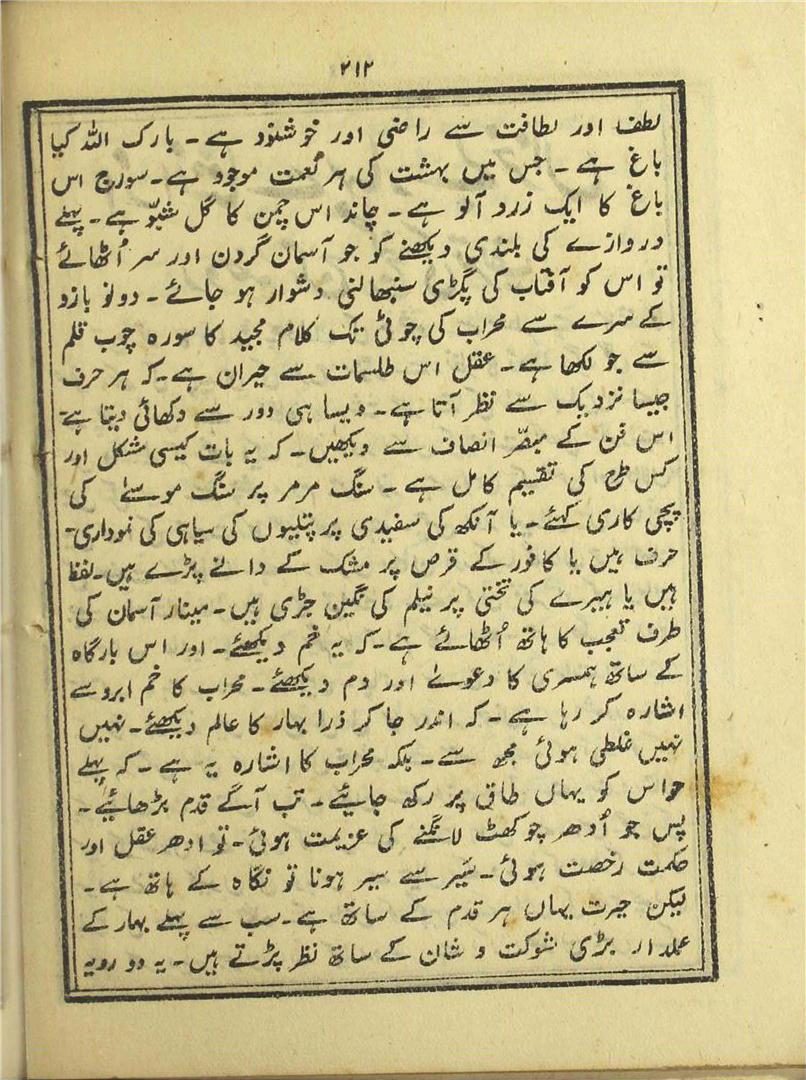 ۲۱۲
لطف اور لطافت سے راضی اور خوشنود ہے۔ بارک اللہ کیا
باغ ہے۔ جس میں بہشت کی ہر نعمت موجود ہے۔ سورج اس
باغ کا ایک زرد آلو ہے۔ چاند اس چمن کا گل شبّو ہے۔ پہلے
دروازے کی بلندی دیکھنے کو جو آسمان گردن اور سر اُٹھائے
تو اس کو آفتاب کی پگڑی سنبھالنی دشوار ہو جائے۔ دونو بازو
کے سرے سے محراب کی چوٹی تک کلام مجید کا سورہ چوب قلم
سے جو لکھا ہے۔ عقل اس طلسمات سے حیران ہے۔ کہ ہر حرف
جیسا نزدیک سے نظر آتا ہے۔ ویسا ہی دور سے دکھائی دیتا ہے۔
اس فن کے مبصّر انصاف سے دیکھیں۔ کہ یہ بات کیسی مشکل اور
کس طرح کی تقسیم کامل ہے۔ سنگ مرمر پر سنگ موسےٰ کی
پچی کاری کہئے۔ یا آنکھ کی سفیدی پر پتلیوں کی سیاہی کی نموداری۔
حرف ہیں یا کافور کے قرص پر مشک کے دانے پڑے ہیں۔ لفظ
ہیں یا ہیرے کی تختی پر نیلم کی نگین جڑی ہیں۔ مینار آسمان کی
طرف تعجب کا ہاتھ اُٹھائے ہے۔ کہ یہ خم دیکھئے۔ اور اس بارگاہ
کے ساتھ ہمسری کا دعوےٰ اور دم دیکھئے۔ محراب کا خم ابرو سے
اشارہ کر رہا ہے۔ کہ اندر جا کر ذرا بہار کا عالم دیکھئے۔ نہیں
نہیں غلطی ہوئی مجھ سے۔ بلکہ محراب کا اشارہ یہ ہے۔ کہ پہلے
حواس کو یہاں طاق پر رکھ جایئے۔ تب آگے قدم بڑھایئے۔
پس جو اُدھر چوکھٹ لانگنے کی عزیمت ہوئی۔ تو ادھر عقل اور
حکمت رخصت ہوئی۔ سَیر سے سیر ہونا تو نگاہ کے ہاتھ ہے۔
لیکن حیرت یہاں ہر قدم کے ساتھ ہے۔ سب سے پہلے بہار کے
عملدار بڑی شوکت و شان کے ساتھ نظر پڑتے ہیں۔ یہ دو رویہ